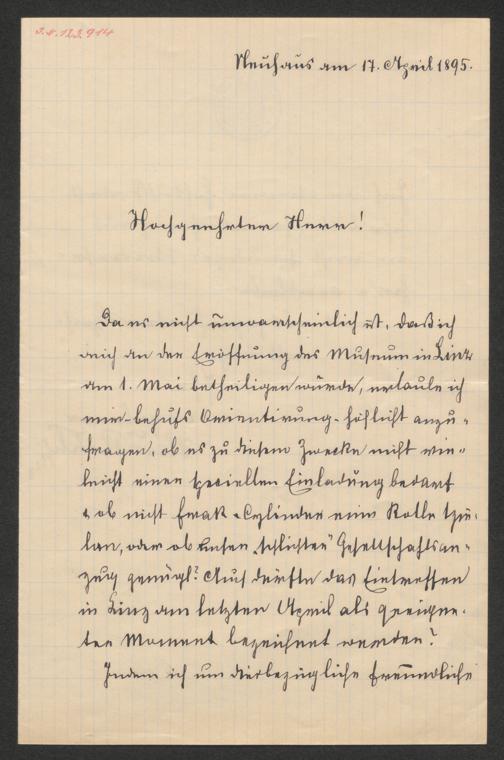 J.N. 123.914
Neuhaus am 17. April 1895.
Hochgeehrter Herr!
Da es nicht unwarscheinlich ist, daß ich
mich an der Eröffnung des Museum in Linz
am 1. Mai betheiligen würde, erlaube ich
mir behufs Orientirung höflichst anzu-
fragen, ob es zu diesem Zwecke nicht vie-
leicht einer speziellen Einladung bedarf
& ob nicht Frak & Cylinder eine Rolle spie-
len, oder ob unser "schlichter" Gesellschaftsan-
zug genügt? Auch dürfte das Eintreffen
in Linz am letzten April als geeigne-
ter Moment bezeichnet werden?
Indem ich um diesbezügliche freundliche